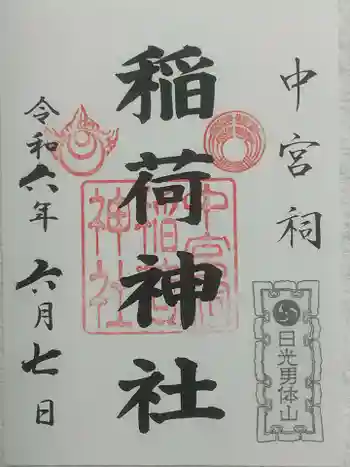 中宮祠
稲荷神社
令和六年 六月七日
日光男体山
中宮祠
稲荷
神社